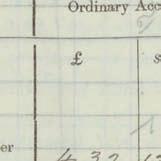 Ordinary Acc
£ s
er
432